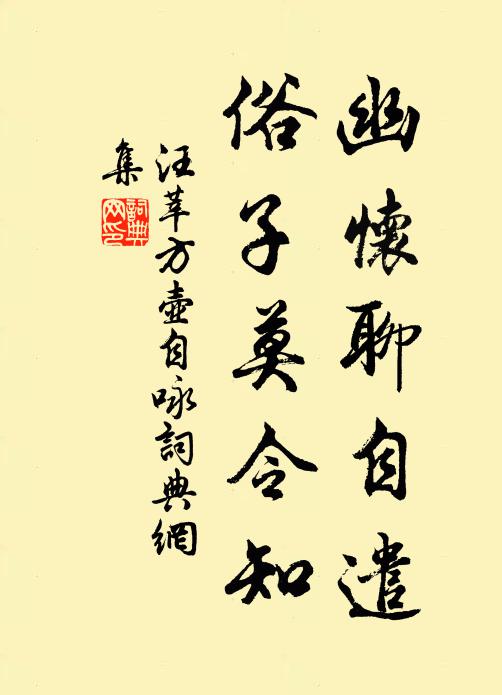 幽懷聊自遣
俗子莫令知
汪莘方壺自咏詞典網
集
詞典网印